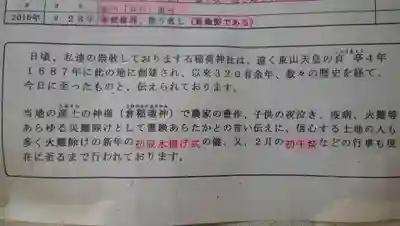 2016年 〃 28年
日頃、私達の崇敬しております稲荷神社は、遠く東山天皇の貞享4年
1687年に此の地に創建され、以来320有余年、数々の歴史を経て、
今日に至ったものと、伝えられております。
当地の産土の神様(倉稲魂神)で農家の豊作、子供の夜泣き、疫病、火難等
あらゆる災難除けとして霊験あらたかとの言い伝えに、信心する土地の人も
多く火難除けの新年の初辰水揚げ式の儀、又、2月の初午祭などの行事も現
在に至るまで行われております。